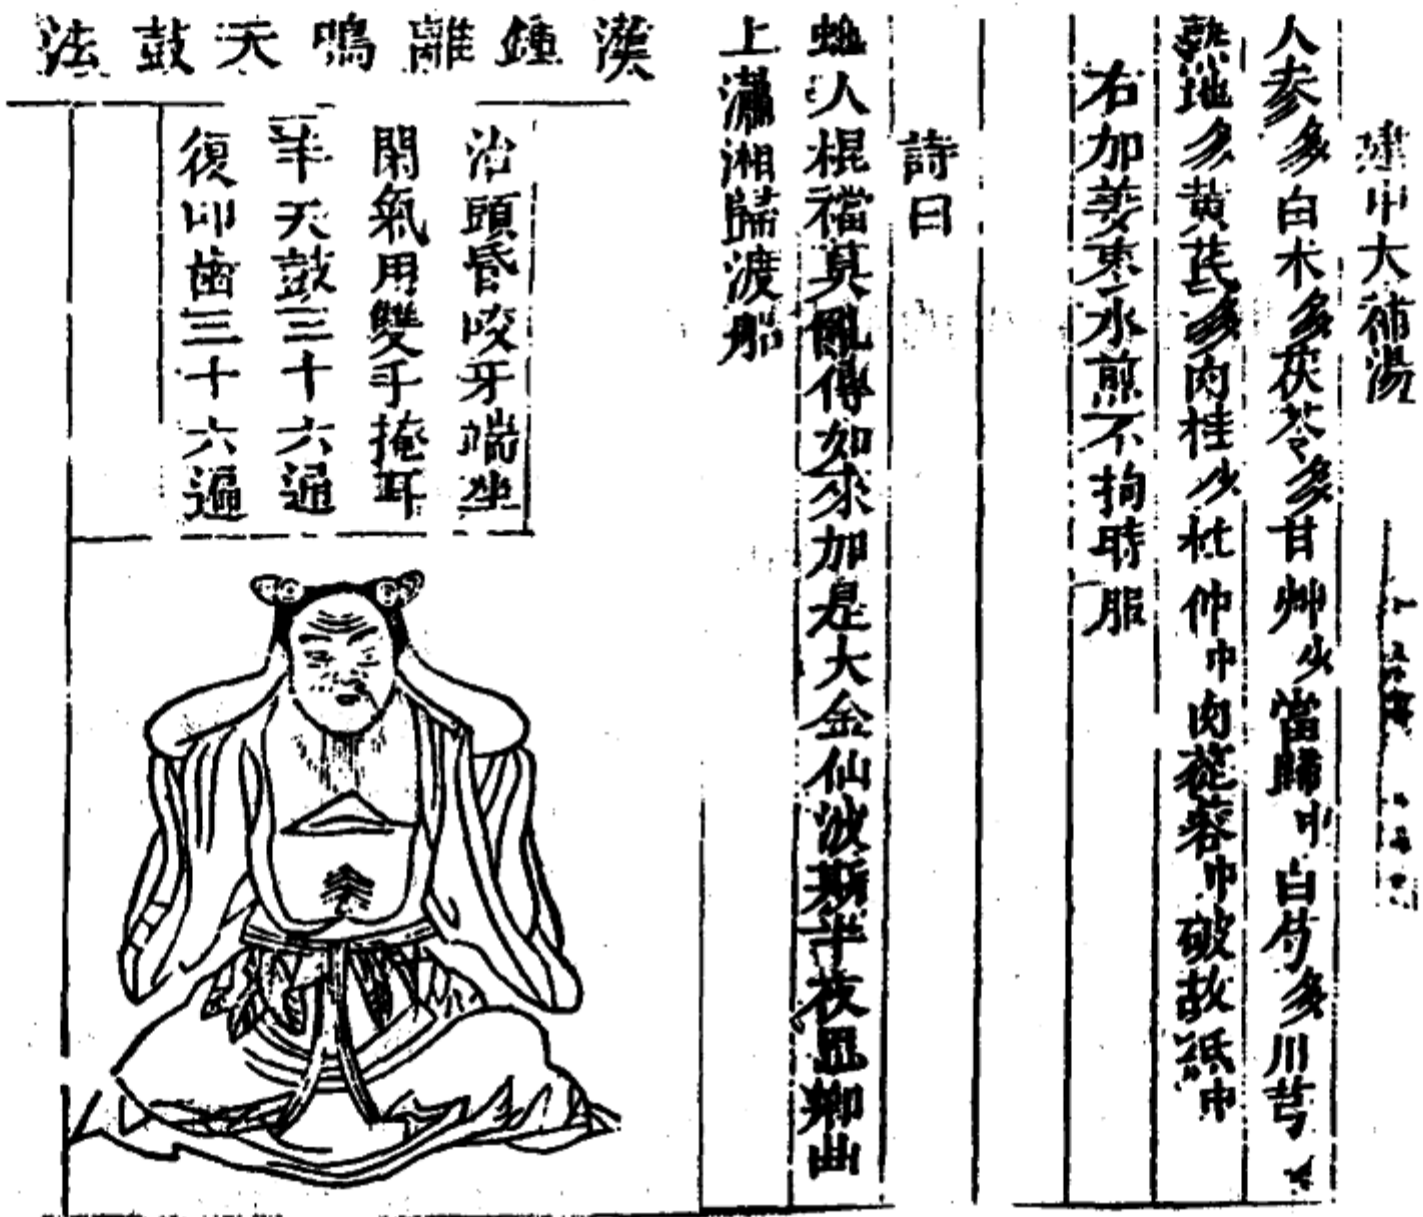 建中大補湯
人参多白朮多茯苓多甘艸少當歸中白芍多川芎
熟地多黄芪多肉桂少杜仲中肉蓯蓉中破故紙中
右加姜棗水煎不拘時服
詩曰
人棍襠真亂傳如來加是大金仙波斯半夜曲
上瀟湘歸渡船
漢鍾離鳴天鼓法
治頭昏咬牙端坐
閉氣用雙手掩耳
天鼓三十六通
復叩齒三十六遍